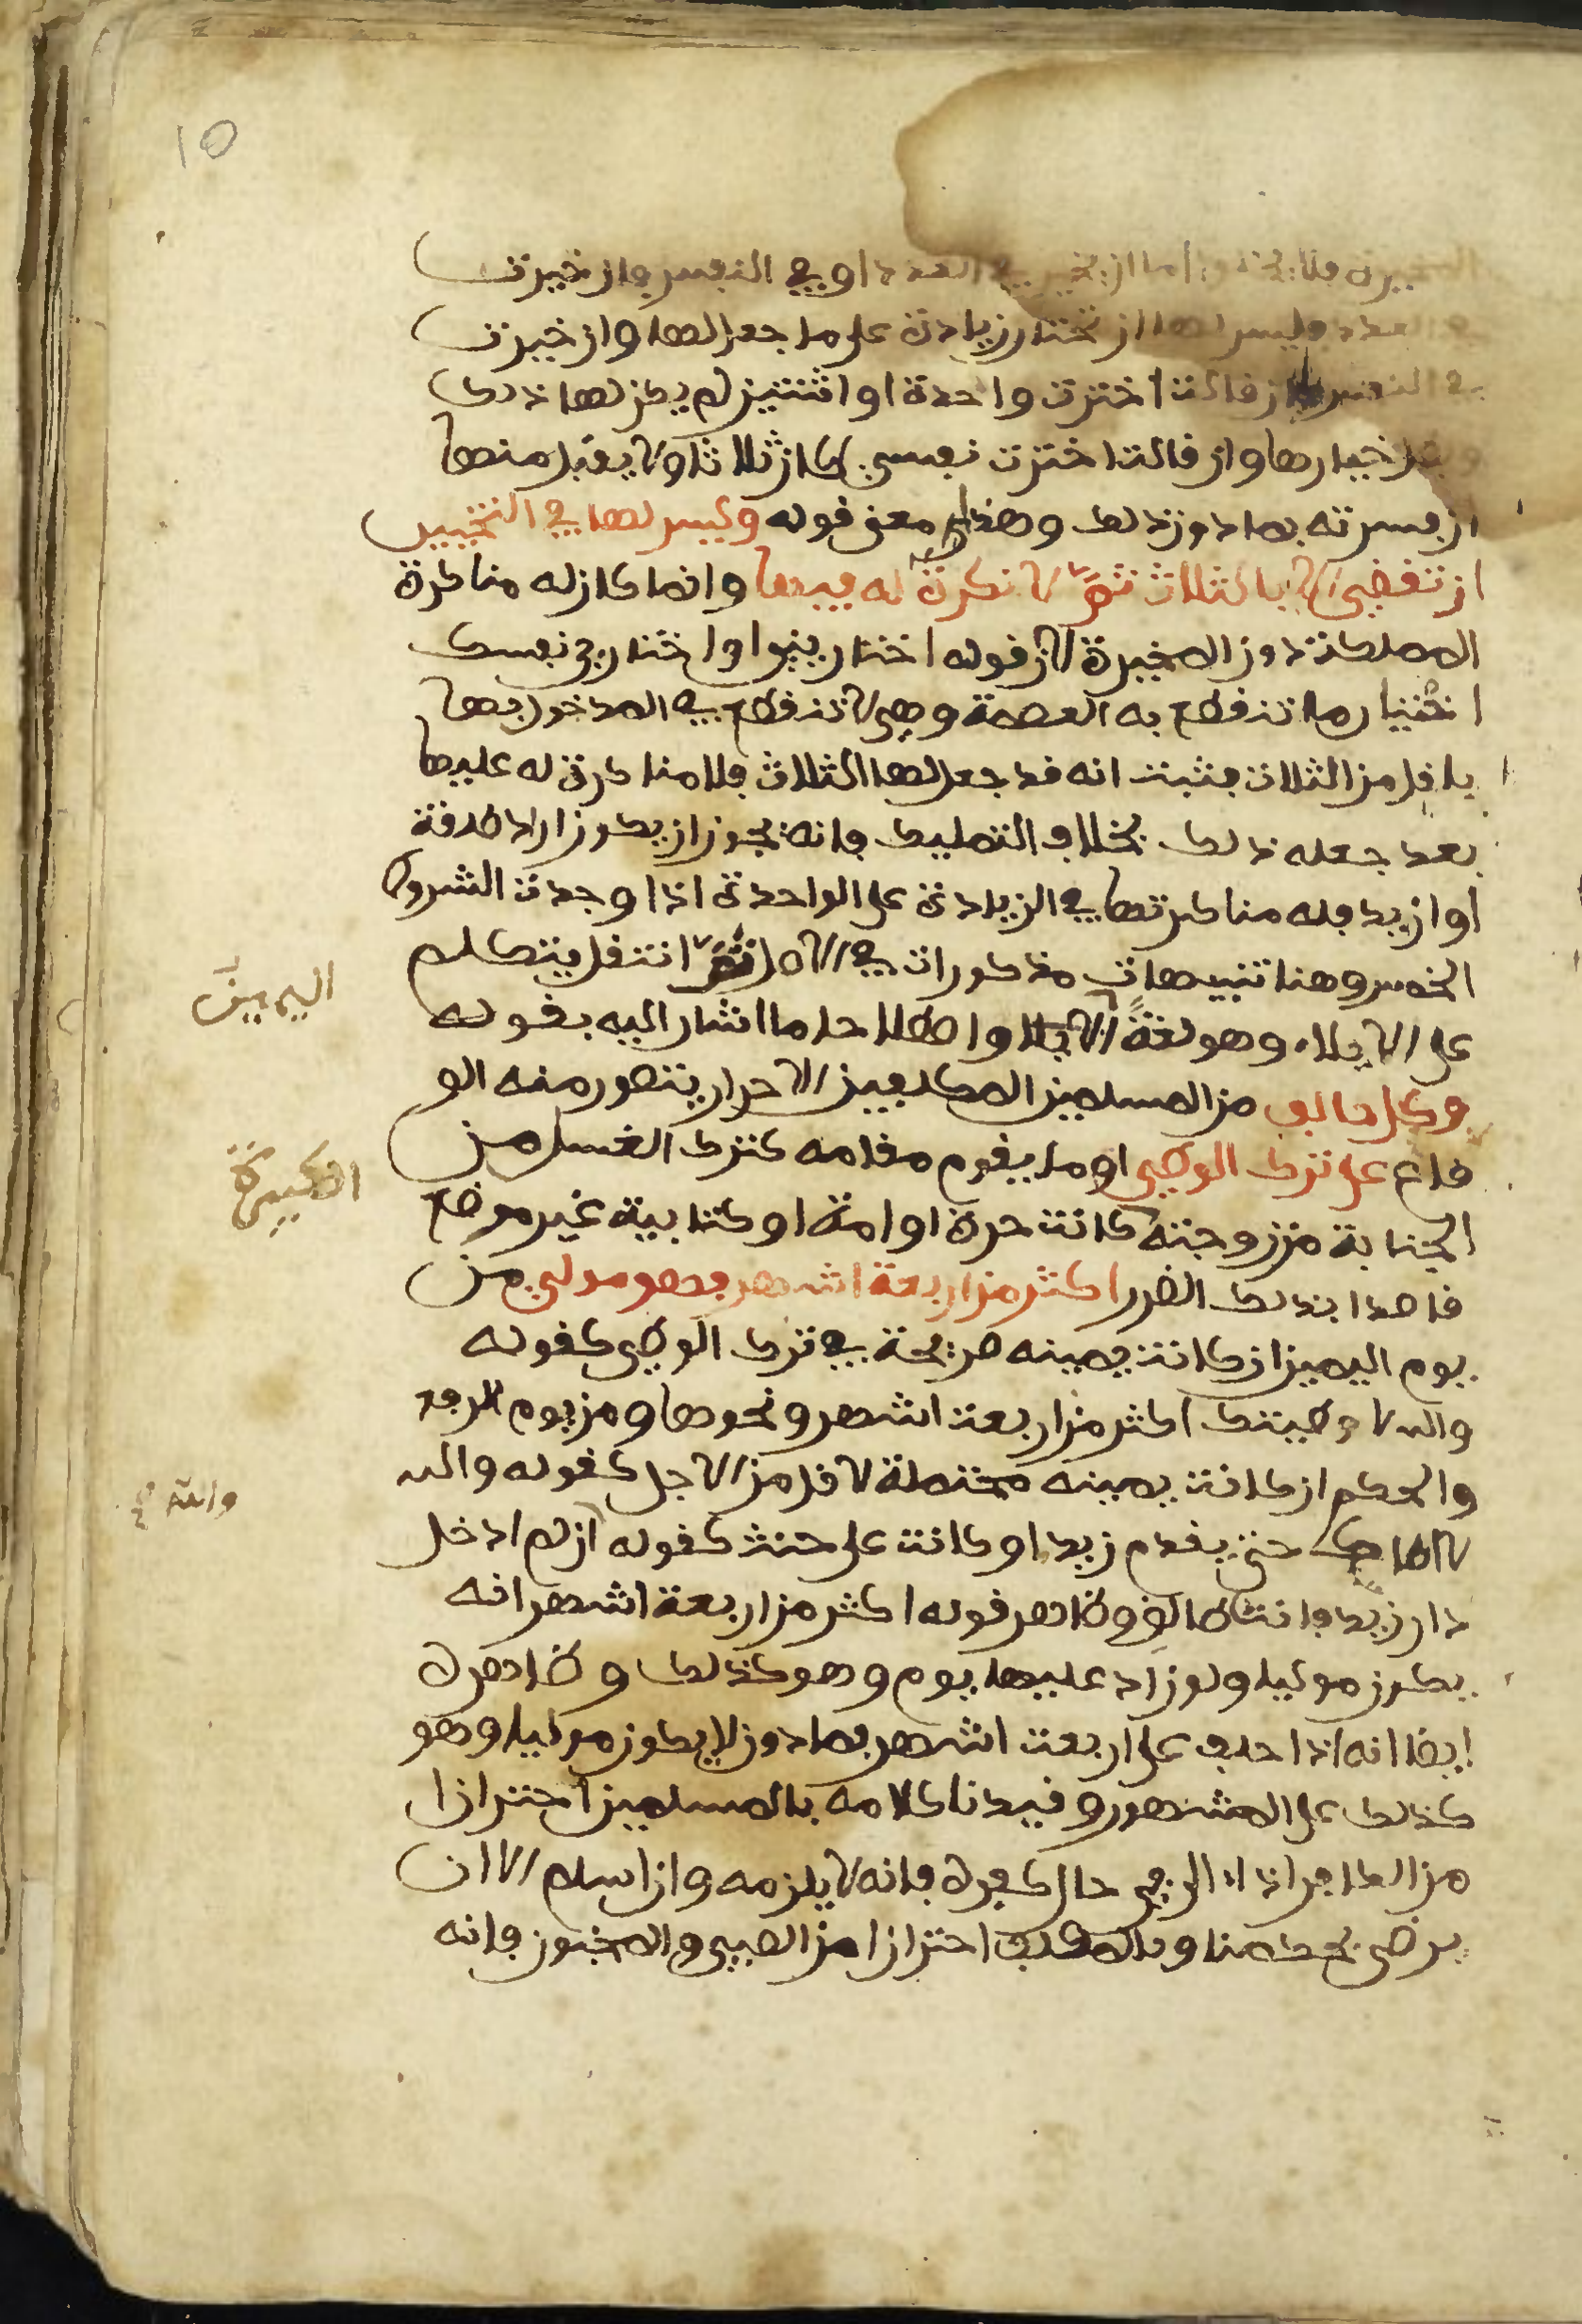 10
المخيرة فلا يخلوا اما ان يخير في العدد او في النفس فان خيرت
في العدد فليس لها ان تختار زيادة على ما جعل لها وان خيرت
في النفس فان قالت اخترت واحدة او اثنتين لم يكن لها ذلك
وبطل خيارها وان قالت اخترت نفسي كان ثلاثا ولا يقبل منها
ان فسرته بما دون ذلك وهذا معنى قوله وليس لها في التخيير
ان تقضي الا بالثلاث ثم لا نكرة له فيها وانما كان له مناكرة
المملكة دون المخيرة لان قوله اختاريني او اختاري نفسك
اختيار ما تنقطع به العصمة وهي لا تنقطع في المدخول بها
باقل من الثلاث فثبت انه قد جعل لها الثلاث فلا مناكرة له عليها
بعد جعله ذلك بخلاف التمليك فانه يجوز ان يكون اراد طلقة
او ازيد فله مناكرتها في الزيادة على الواحدة اذا وجدت الشروط
الخمس وهنا تنبيهات مذكورات في الاصل ثم انتقل يتكلم
على الايلاء وهو لغة واصطلاحا ما اشار اليه بقوله
اليمين
وكل حالف من المسلمين المكلفين الاحرار يتصور منه الو
قاع على ترك الوطي او ما يقوم مقامه كترك الغسل من
الكبيرة
الجنابة من زوجته كانت حرة او امة او كتابية غير مرضع
قاصدا بذلك الضرر اكثر من اربعة اشهر فهو مولي من
يوم اليمين ان كانت يمينه صريحة في ترك الوطي كقوله
والله لا وطيتك اكثر من اربعت اشهر ونحوها ومن يوم الرفع
والحكم ان كانت يمينه محتملة لاقل من الاجل كقوله والله
والله
لا اطاك حتى يقدم زيد او كانت على حنث كقوله ان لم ادخل
دار زيد فانت طالق وظاهر قوله اكثر من اربعة اشهر انه
يكون موليا ولو زاد عليها يوم وهو كذلك وظاهره
ايضا انه اذا حلف على اربعت اشهر فما دون لا يكون موليا وهو
كذلك على المشهور وقيدنا كلامه بالمسلمين احترازا
من الكافر اذا الى في حال كفره فانه لا يلزمه وان اسلم الا ان
يرضى بحكمنا وبالمكلف احترازا من الصبي والمجنون فانه